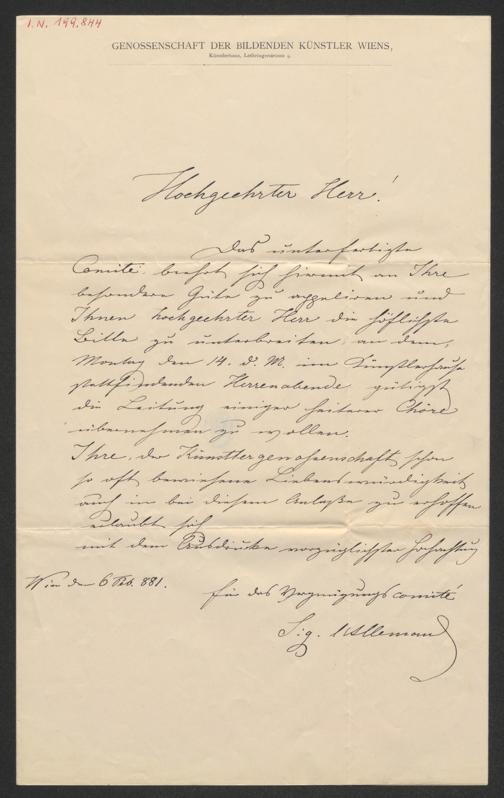 I.N. 199.844
GENOSSENSCHAFT DER BILDENDEN KÜNSTLER WIENS,
Künstlerhaus, Lothringerstrasse 9.
Hochgeehrter Herr!
Das unterfertigte
Comité beehrt sich hiermit an Ihre
besondere Güte zu appeliren und
Ihnen hochgeehrter Herr die höflichste
Bitte zu unterbreiten, an dem,
Montag den 14. d. M. im Künstlerhause
stattfindenden Herrenabende, gütigst
die Leitung einiger heiterer Chöre
übernehmen zu wollen.
Ihre, der Künstlergenossenschaft schon
so oft bewiesene Liebenswürdigkeit
auch in bei diesem Anlaße zu erhoffen
erlaubt sich
mit dem Ausdrucke vorzüglichster Hochachtung
Wien den 6 Feb. 881.
für das Vergnügungscomité
Sig. L'Allemand